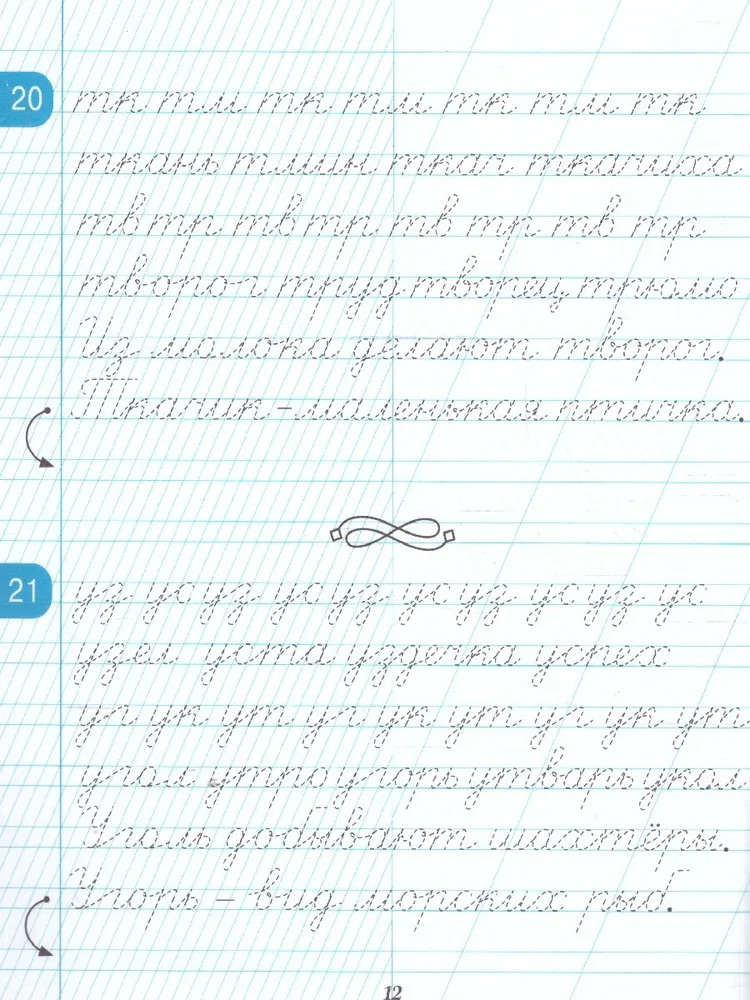 20
тк тм тк тм тк тм тк
ткань тмин ткач ткачиха
тв тр тв тр тв тр тв тр
творог труд творец трюмо
Из молока делают творог.
Ткачик – маленькая птичка.
21
уз ус уз ус уз ус уз ус уз ус
узел уста уздечка успех
уг ук ут уг ук ут уг ук ут
угол утро угорь утварь укол
Уголь добывают шахтёры.
Угорь – вид морских рыб.
12